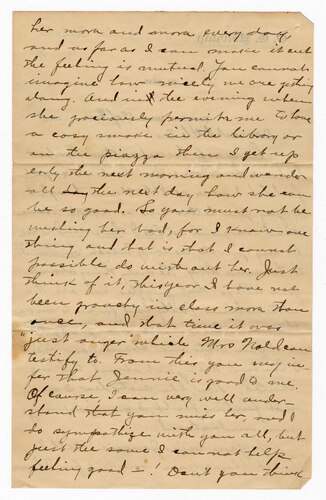 her more and more every day,
and as far as I can make it out
the feeling is mutual. You cannot
imagine how nicely we are getting
along. And in the evening when
she graciously permits me to have
a cosy smoke in the library or
on the piazza then I get up
early the next morning and wonder
all the next day how she can
be so good. So you must not be
wishing her bad, for I know one
thing and that is that I cannot
possible do without her. Just
think of it, this year I have not
been grouchy in class more than
once, and that time it was
"just anger" which Mrs
testify to. From this you may in-
fer that Jennie is good to me.
Of course, I can very well under-
stand that you miss her, and I
do sympathize with you all, but
just the same I cannot help
feeling good – ! Don't you think